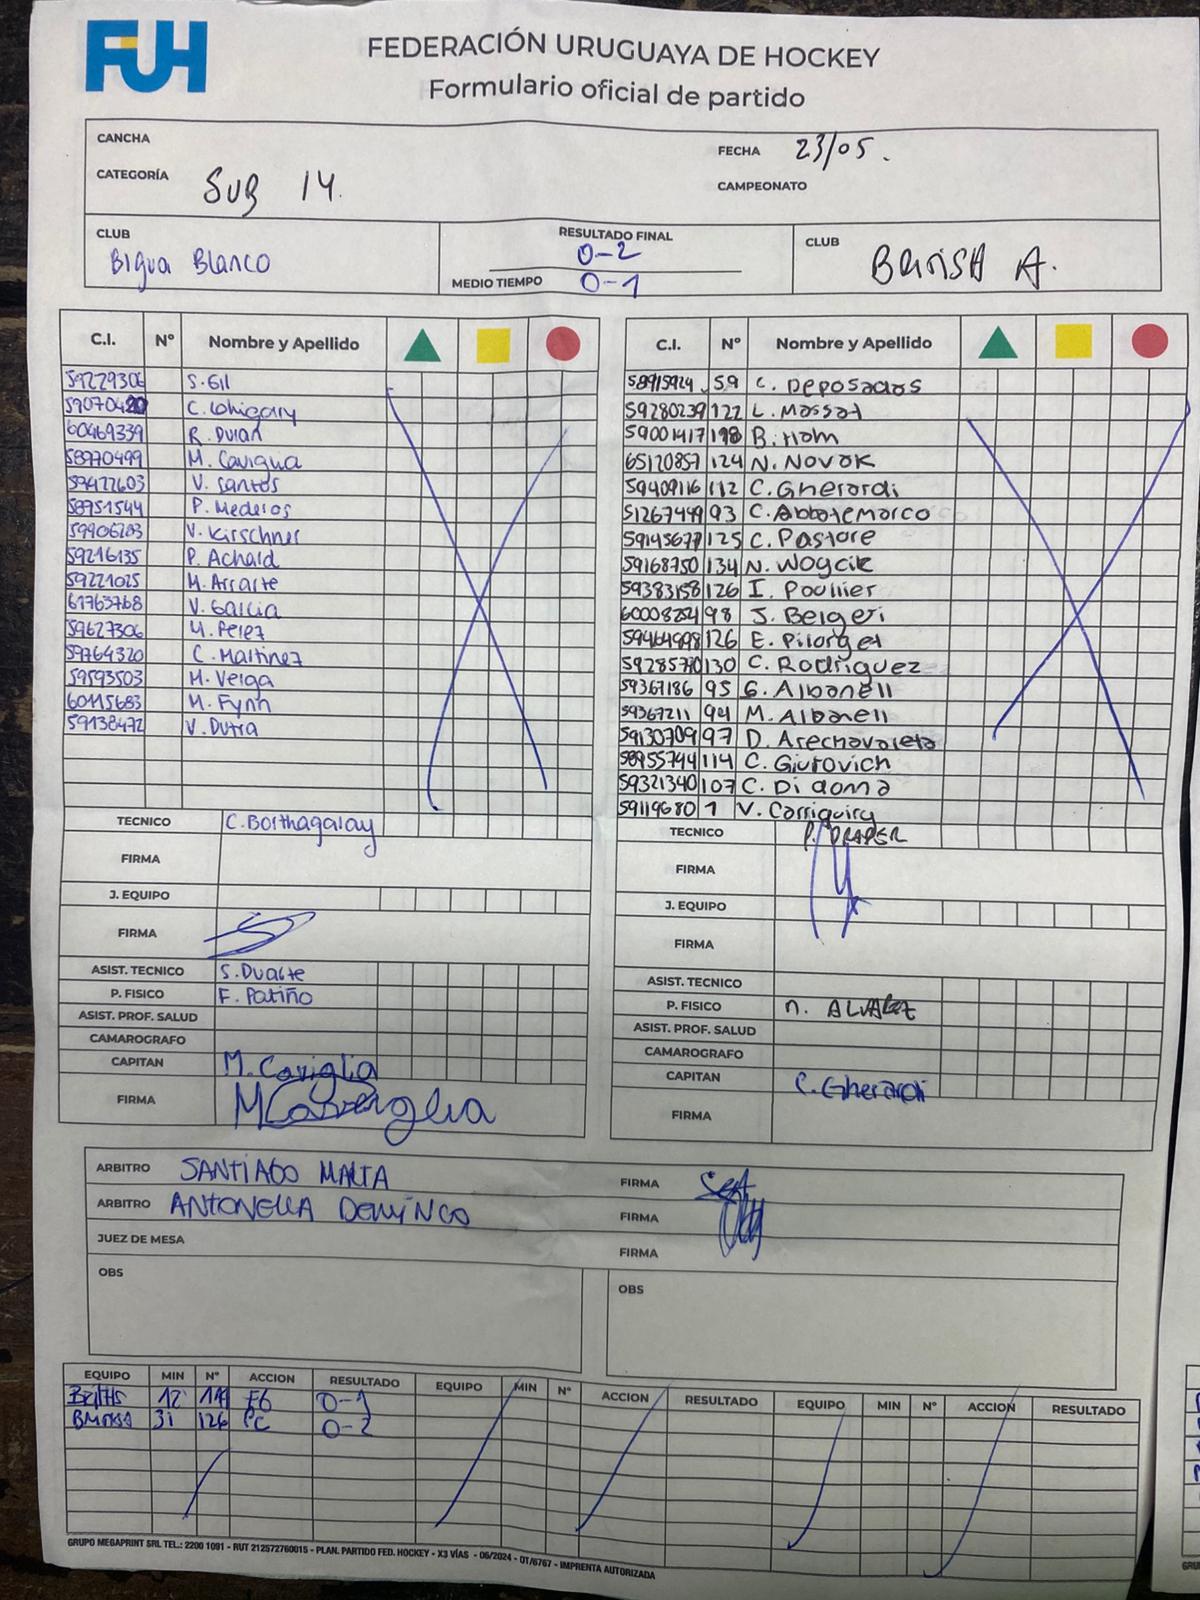 FUH
FEDERACIÓN URUGUAYA DE HOCKEY
Formulario oficial de partido
CANCHA
FECHA 23/05.
CATEGORÍA SUB 14.
CAMPEONATO
CLUB Bigua Blanco
RESULTADO FINAL 0-2
MEDIO TIEMPO 0-1
CLUB British A.
C.I. Nº Nombre y Apellido
59229306 S. Gil
59070420 C.
60469339 R. Duran
58970499 M. Caviglia
59422603 V. Santos
58951544 P. Mederos
59906283 V. Kirschner
59216135 P. Achard
59221025 M. Arrarte
61763768 V. Garcia
59627306 M. Perez
59764320 C. Martinez
59593503 M. Verga
60115683 M. Fynn
59138472 V. Dutra
TECNICO C. Borthagaray
FIRMA
J. EQUIPO
FIRMA
ASIST. TECNICO S. Duarte
P. FISICO F. Patiño
ASIST. PROF. SALUD
CAMAROGRAFO
CAPITAN M. Caviglia
FIRMA M Caviglia
C.I. Nº Nombre y Apellido
58915924 59 C. Deposados
59280239 122 L. Massat
59001417 198 B. Hom
65120857 124 N. Novak
59409116 112 C. Gherardi
51267449 93 C. Abbatemarco
59145677 125 C. Pastore
59168750 134 N. Woycik
59383158 126 I. Poullier
60008254 98 J. Belgeri
59464898 126 E. Pilorget
59285770 130 C. Rodriguez
59367186 95 G. Albanell
59367211 94 M. Albanell
59130709 97 D. Arechavaleta
58955744 114 C. Giurovich
59321340 107 C. Di doma
59119680 1 V. Carriquiry
TECNICO P. DRAPER
FIRMA
J. EQUIPO
FIRMA
ASIST. TECNICO
P. FISICO N. ALVAREZ
ASIST. PROF. SALUD
CAMAROGRAFO
CAPITAN C. Gherardi
FIRMA
ARBITRO SANTIAGO MALTA FIRMA
ARBITRO ANTONELLA DOMINGO FIRMA
JUEZ DE MESA FIRMA
OBS
OBS
EQUIPO MIN Nº ACCION RESULTADO EQUIPO MIN Nº ACCION RESULTADO EQUIPO MIN Nº ACCION RESULTADO
12 0-1
31 126 PC 0-2
GRUPO MEGAPRINT SRL TEL.: 2200 1091 - RUT 212572760015 - PLAN. PARTIDO FED. HOCKEY - X3 VÍAS - 06/2024 - OT/6767 - IMPRENTA AUTORIZADA